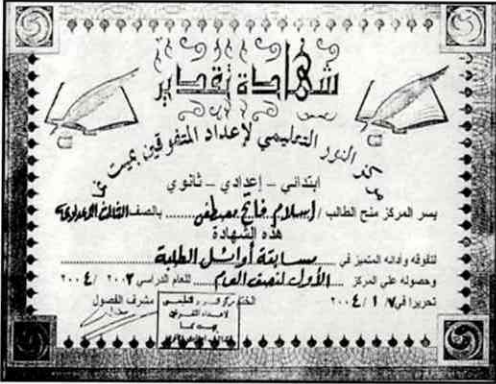 شهادة تقدير
مركز النور التعليمي لإعداد المتفوقين بميت
ابتدائي – إعدادي – ثانوي
يسر المركز منح الطالب / إسلام فاتح مصطفى بالصف الثالث الإعدادي
هذه الشهادة
لتفوقه وأدائه المتميز في مسابقة أوائل الطلبة
وحصوله على المركز الأول لنصف العام للعام الدراسي ٢٠٠٤/٢٠٠٣
تحريرا في ٢٠٠٤/١/٧ الختم مشرف الفصول